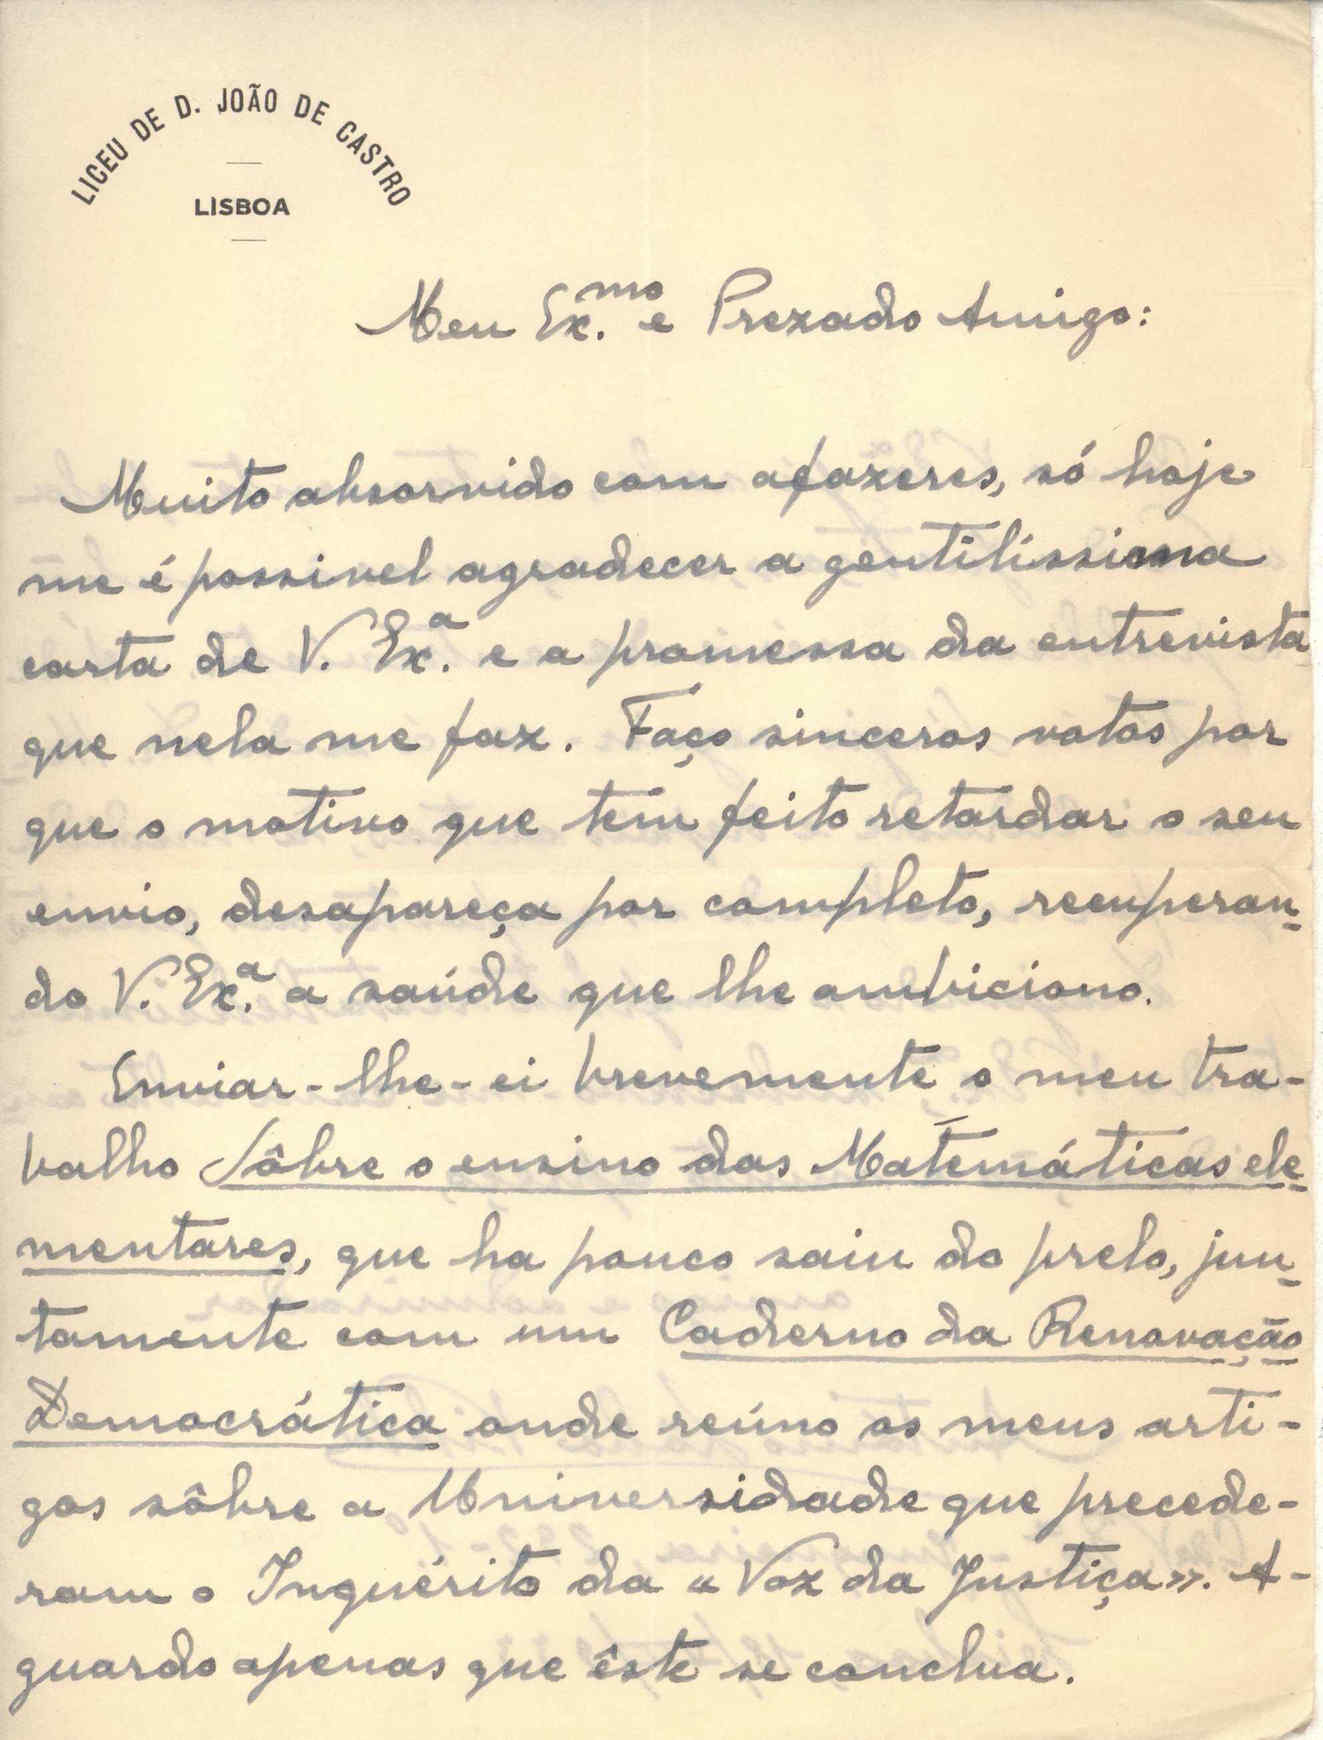 LICEU DE D. JOÃO DE CASTRO
LISBOA
Meu Ex.mo e Prezado Amigo:
Muito absorvido com afazeres, só hoje
me é possivel agradecer a gentilíssima
carta de V. Ex.a e a promessa da entrevista
que nela me faz. Faço sinceros votos por
que o motivo que tem feito retardar o seu
envio, desapareça por completo, recuperan-
do V. Ex.a a saúde que lhe ambiciono.
Enviar-lhe-ei brevemente o meu tra-
balho Sôbre o ensino das Matemáticas ele-
mentares, que ha pouco saiu do prelo, jun-
tamente com um Caderno da Renovação
Democrática onde reúno os meus arti-
gos sôbre a Universidade que precede-
ram o Inquérito da «Voz da Justiça». A-
guardo apenas que êste se conclua.